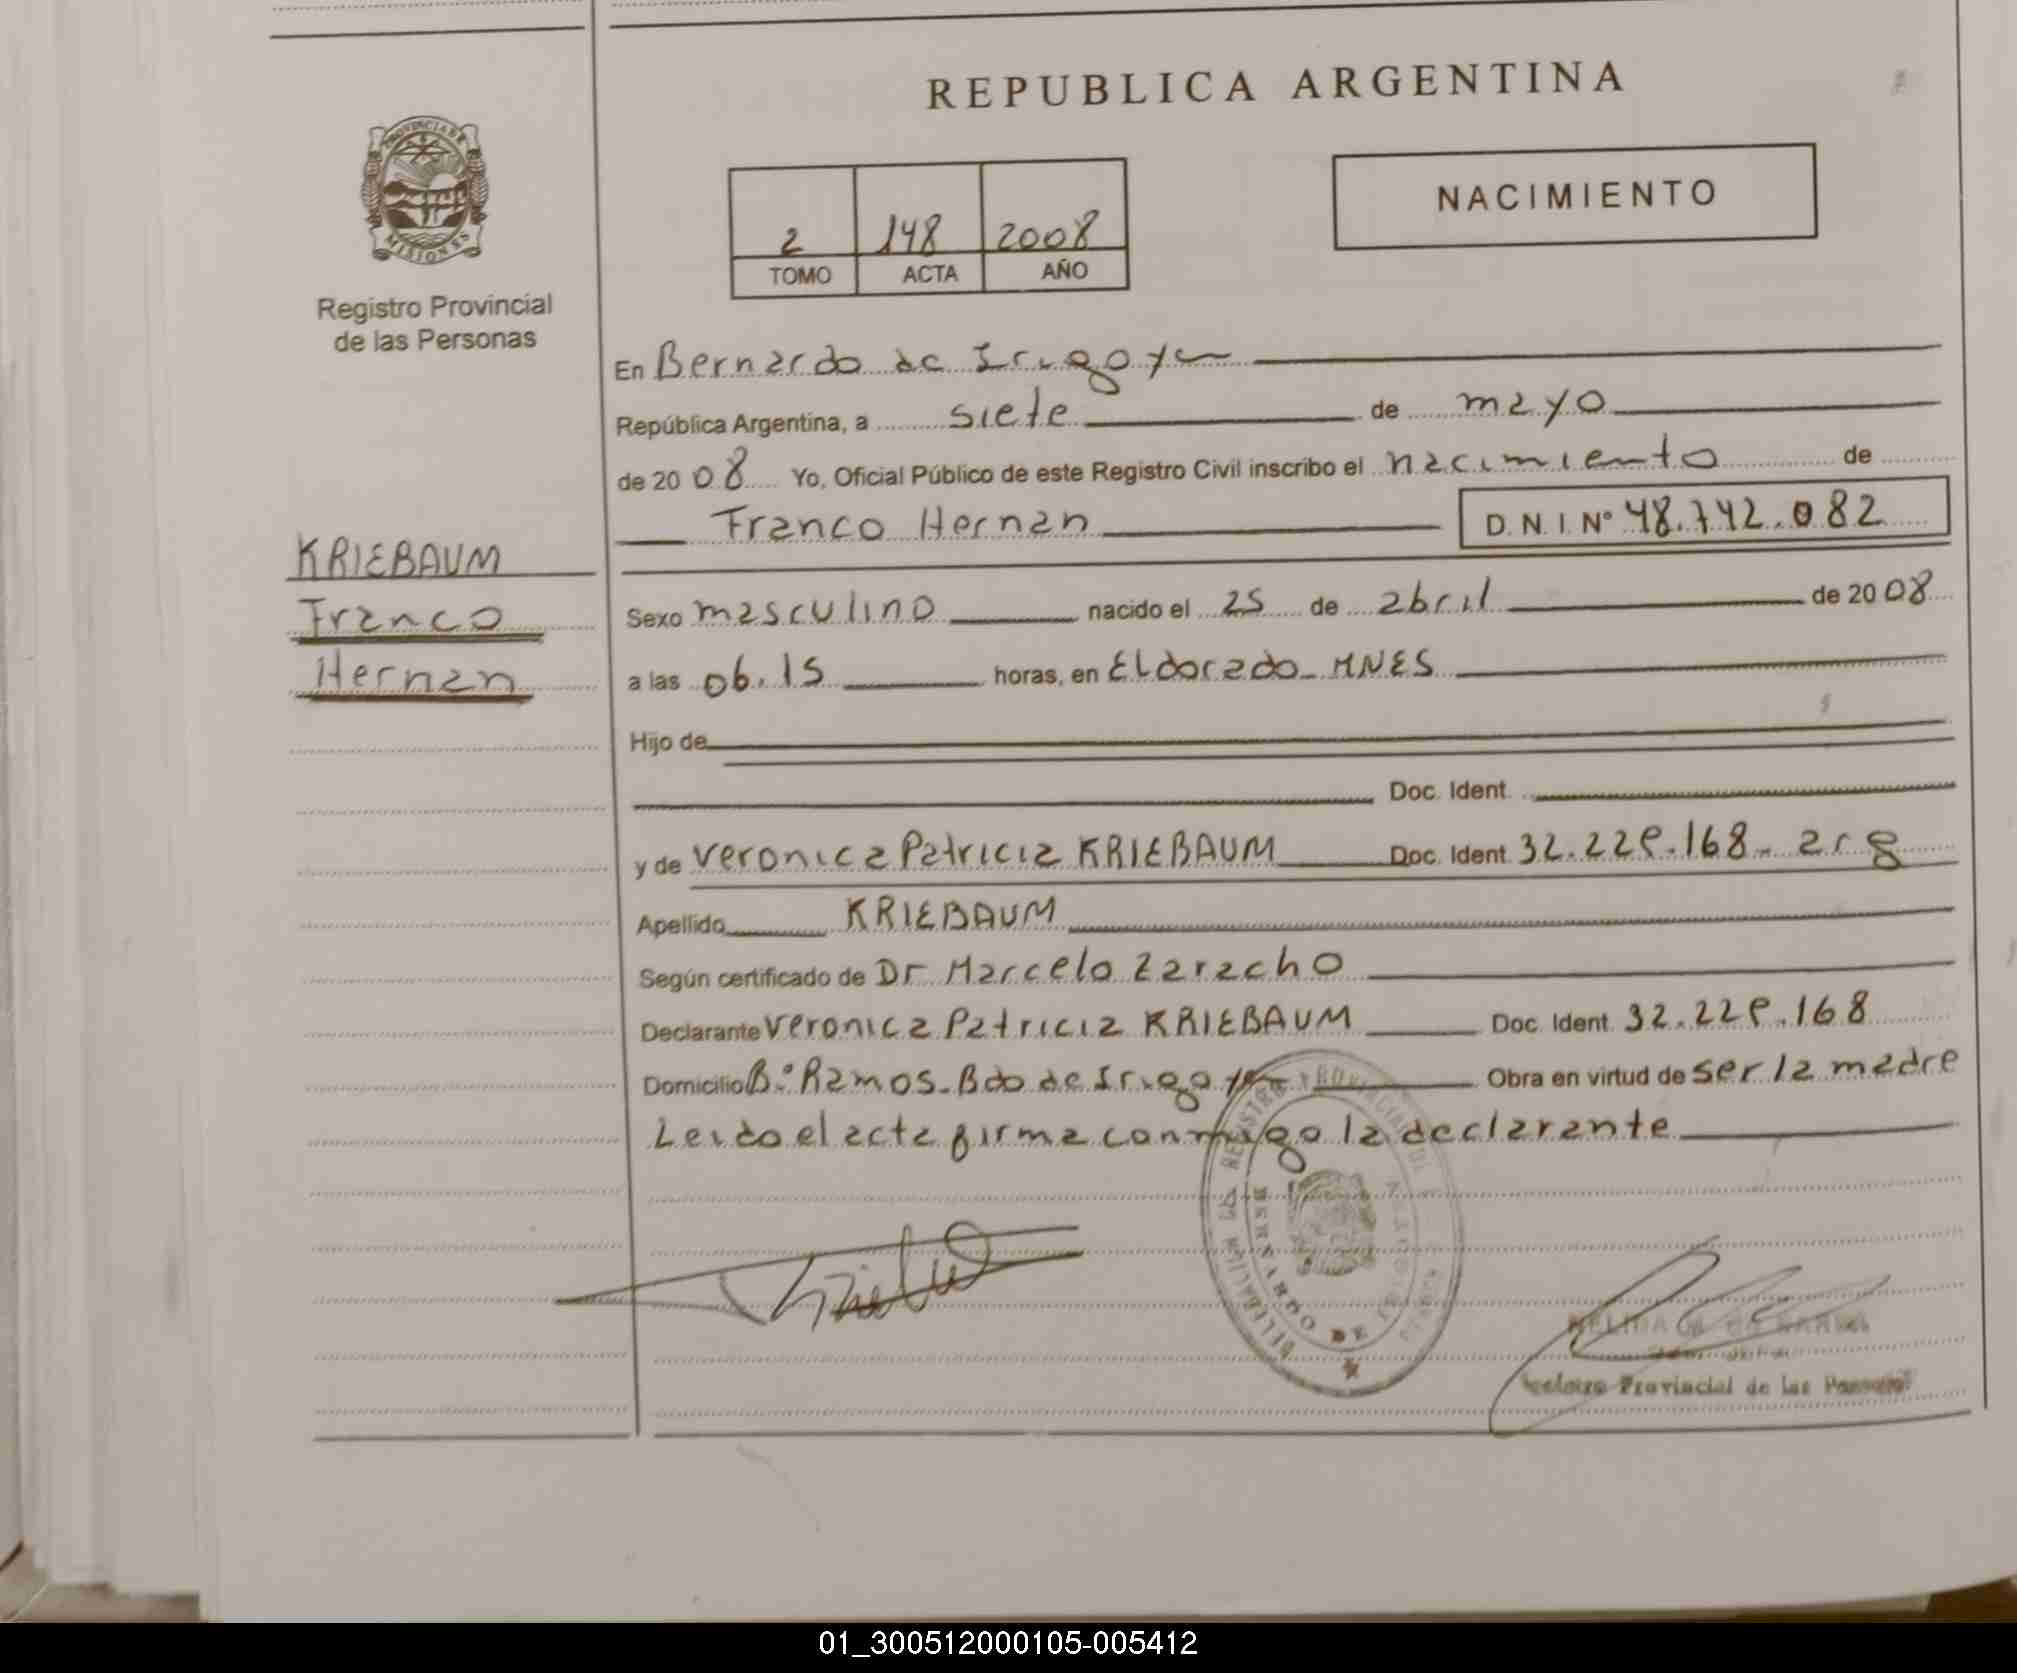 REPUBLICA ARGENTINA
PROVINCIA DE
MISIONES
Registro Provincial
de las Personas
2 148 2008
TOMO ACTA AÑO
NACIMIENTO
En Bernardo de Irigoyen
República Argentina, a siete de mayo
de 2008 Yo, Oficial Público de este Registro Civil inscribo el nacimiento de
Franco Hernan D.N.I. Nº 48.742.082
KRIEBAUM
Franco
Hernan
Sexo masculino nacido el 25 de abril de 2008
a las 06.15 horas, en Eldorado - MNES
Hijo de
Doc. Ident.
y de Veronica Patricia KRIEBAUM Doc. Ident. 32.229.168 - arg
Apellido KRIEBAUM
Según certificado de Dr Marcelo Zaracho
Declarante Veronica Patricia KRIEBAUM Doc. Ident. 32.229.168
Domicilio Bº Ramos - Bdo de Irigoyen Obra en virtud de ser la madre
Leido el acta firma conmigo la declarante
BERNARDO DE
Provincial de las
01_300512000105-005412